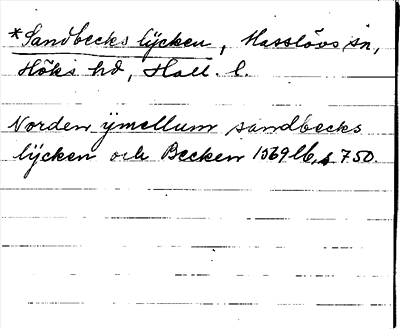 *Sandbecks lÿcken, Hasslövs sn,
Höks hd, Hall. l.
Norden ÿmellum sandbecks
lÿcken och Becken 1569 lb, s 750.